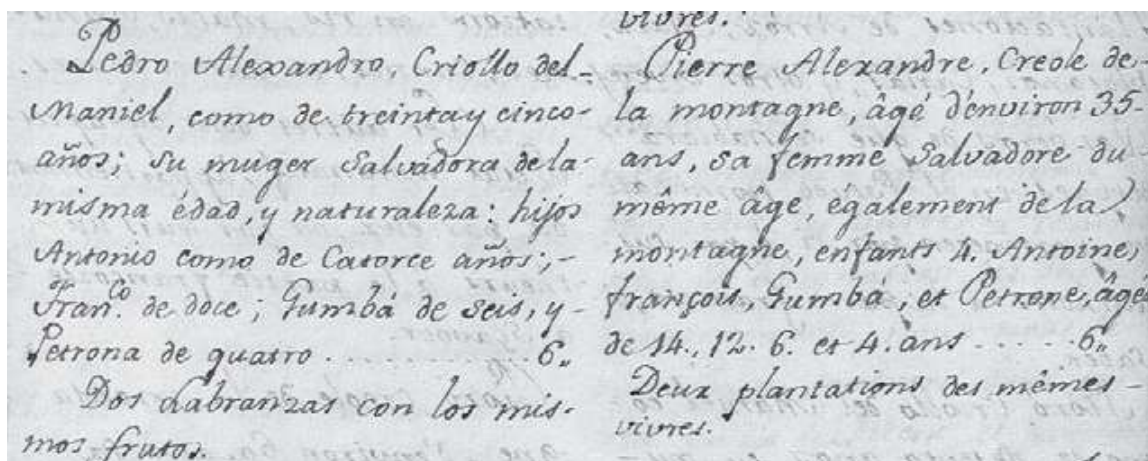 Pedro Alexandro, Criollo del-
Maniel, como de treinta y cinco-
años; su muger Salvadora de la-
misma édad, y naturaleza: hijos
Antonio como de Catorce años;-
Fran.co de doce; Gumbá de seis, y-
Petrona de quatro . . . . . . . . . . 6,,
Dos Labranzas con los mis-
mos frutos.
vivres.
Pierre Alexandre, Creole de-
la montagne, âgé d'environ 35
ans, sa femme Salvadore du
même âge, également de la
montagne, enfants 4. Antoine,
françois, Gumbá, et Petrone, âgé
de 14., 12. 6. et 4. ans . . . . . 6,,
Deux plantations des mêmes-
vivres.